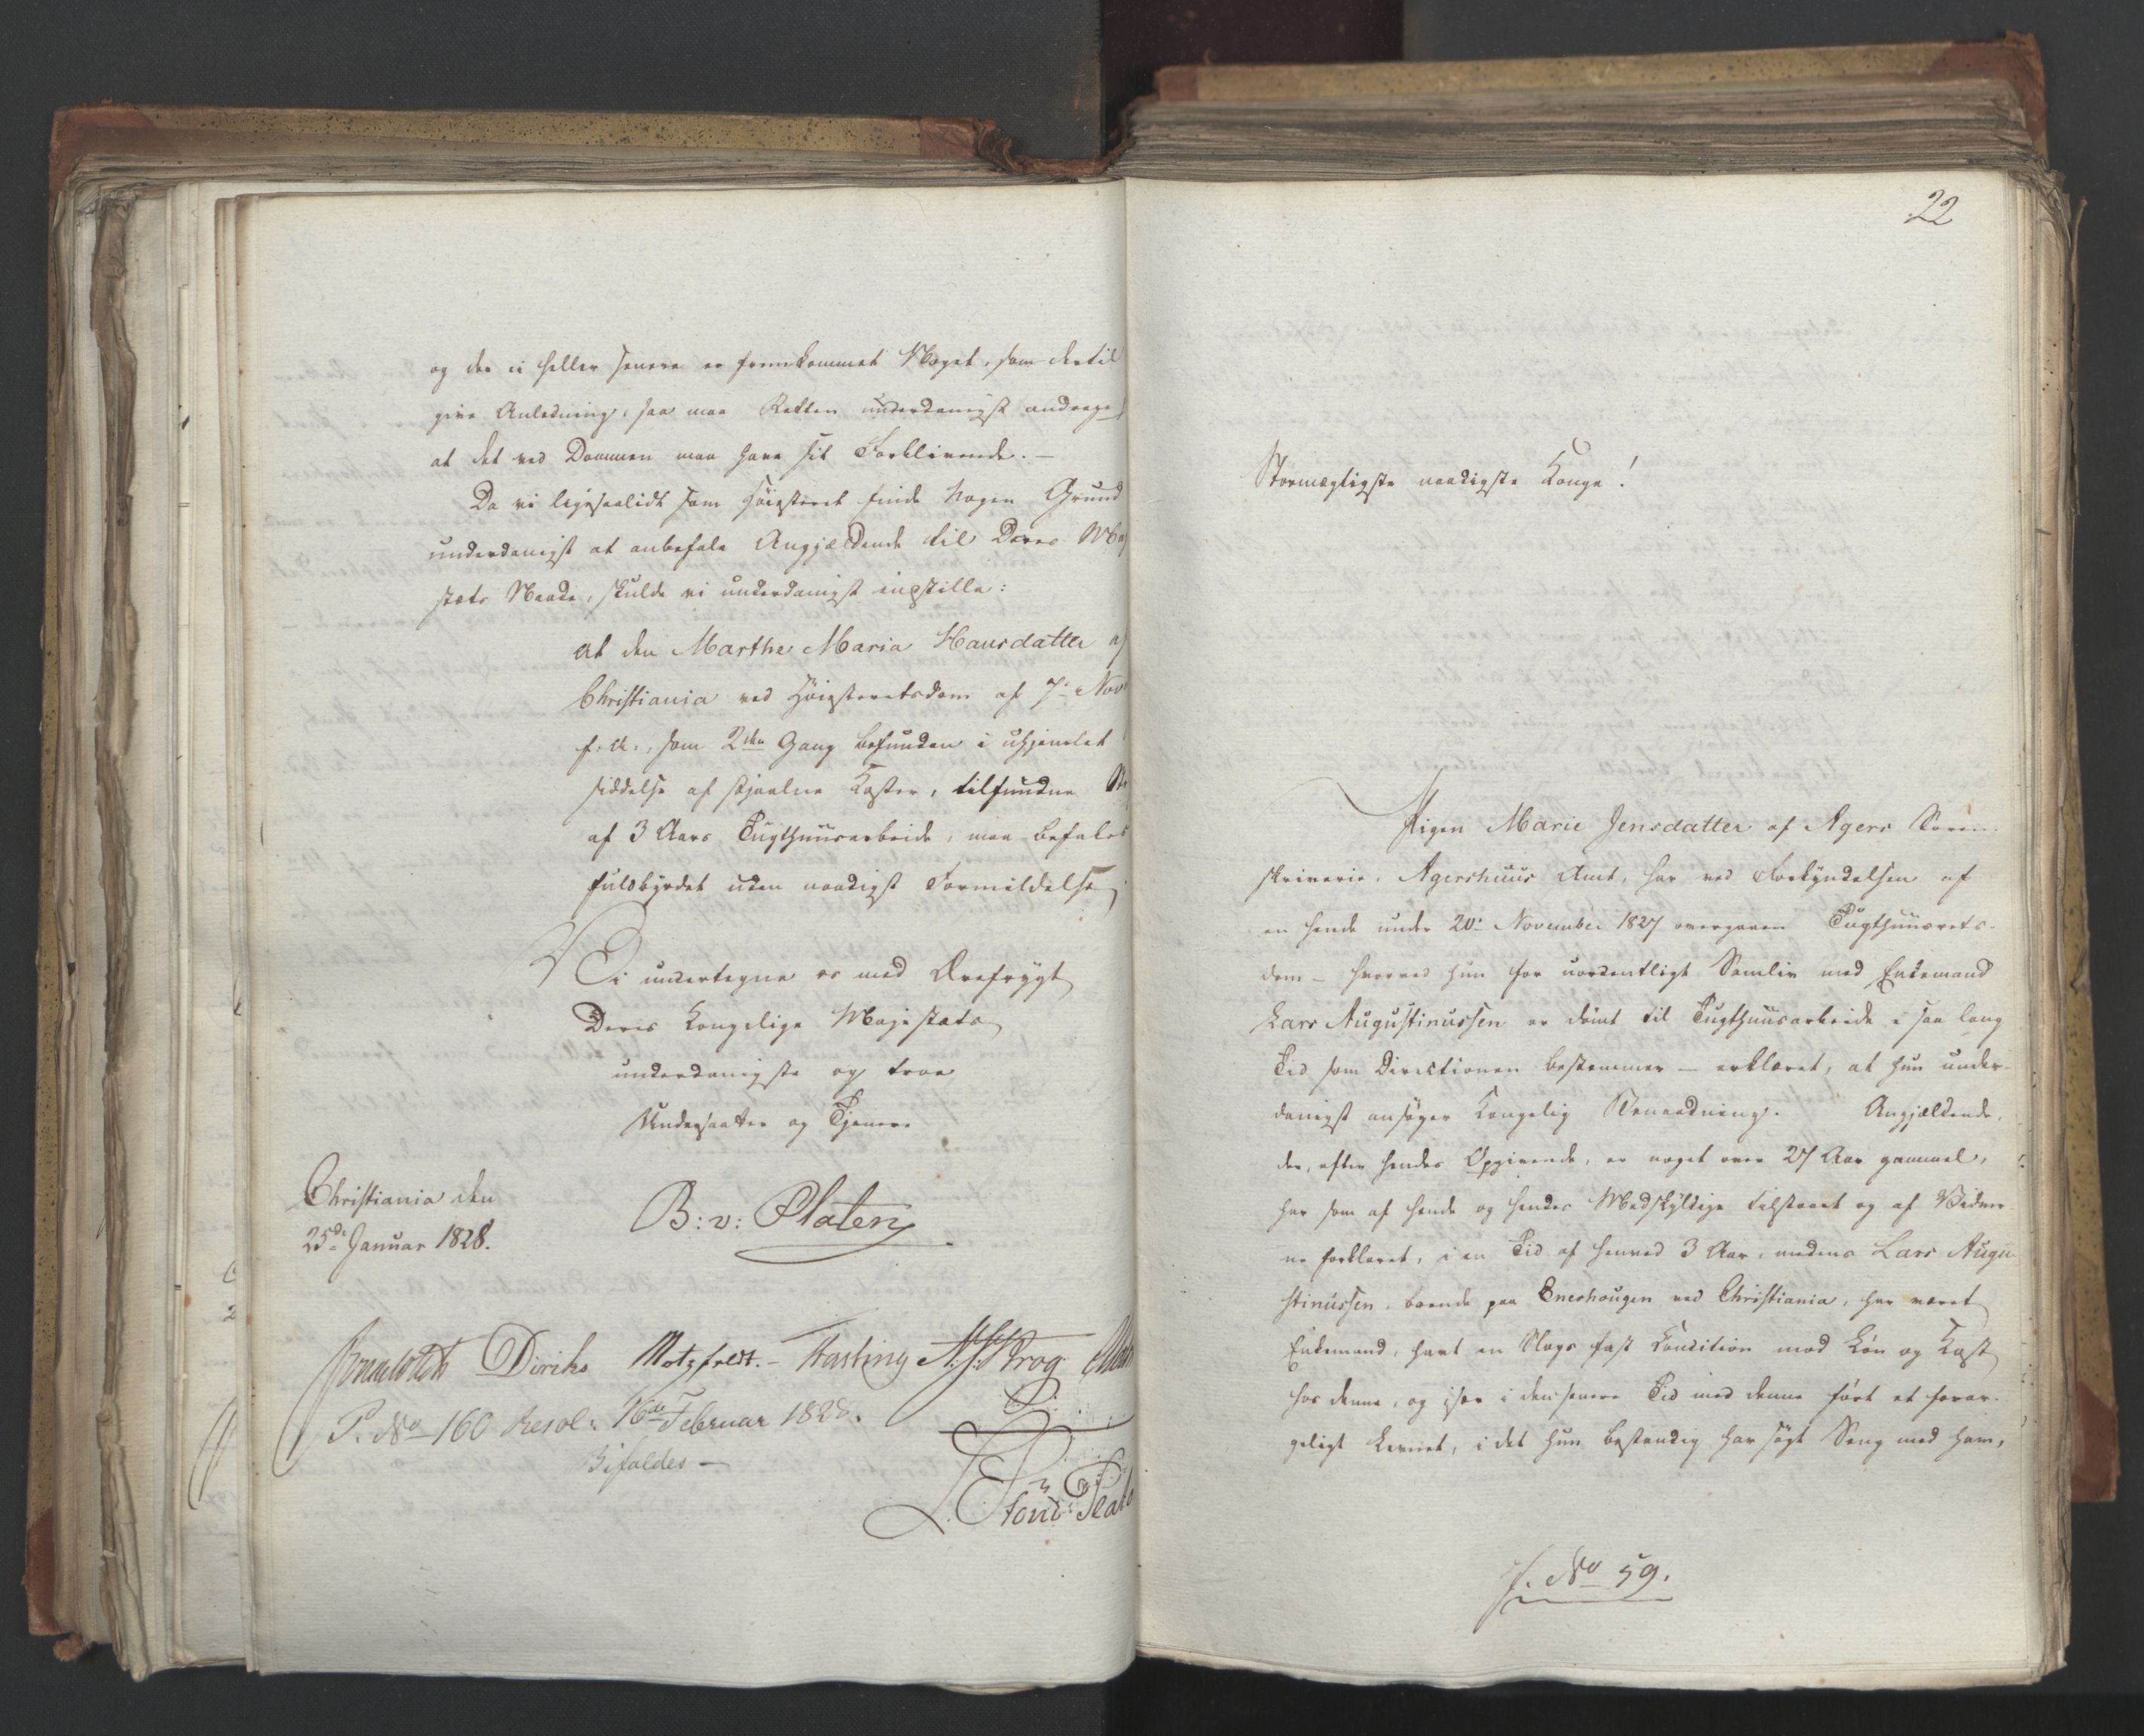 og der ei heller senere er fremkommet Noget, som dertil
give Anledning, saa maa Retten underdanigst andrage
at det ved Dommen maa have sit Forblivende. —
Da vi ligesaalidt som Høiesteret finde Nogen Grund
underdanigst at anbefale Angjældende til Deres Maj
stæts Naade, skulde vi underdanigst indstille:
at den Marthe Maria Hansdatter af
Christiania ved Høiesteretsdom af 7de Novr
f: A:, som 2den Gang befunden i uhjemlet
siddelse af stjaalne Koster, tilfundne
af 3 Aars Tugthuusarbeide, maa befales
fuldbyrdet uden naadigst Formildelse
Vi undertegne os med Ærefrygt
Deres Kongelige Majestæts
underdanigste og troe
Undersaatter og Tjenere
Christiania den
25de Januar 1828.
B: v: Platen
Diriks Motzfeldt. — Fasting Krog
P. No 160 Resol: 16de Februar 1828.
Bifaldes —
22
Stormægtigste naadigste Konge!
Pigen Marie Jensdatter af Agers Soren-
skriverie, Agershuus Amt, har ved Forkyndelsen af
en hende under 20de November 1827 overgaaen Tugthuusrets-
dom — hvorved hun for uordentligt Samliv med Enkemand
Lars Augustinussen er dømt til Tugthuusarbeide i saa lang
Tid som Directionen bestemmer — erklæret, at hun under-
danigst ansøger Kongelig Benaadning. Angjældende,
der, efter hendes Opgivende, er noget over 27 Aar gammel,
har som af hende og hendes Medskyldige tilstaaet og af Vidner
ne forklaret, i en Tid af henved 3 Aar, medens Lars Augu
stinussen, boende paa Eneshougen ved Christiania, har været
Enkemand, havt en Slags fast Condition med Løn og Kost
hos denne, og især i den senere Tid med denne ført et forar-
geligt Levnet, i det hun bestandig har søgt Seng med ham,
f. No 59.